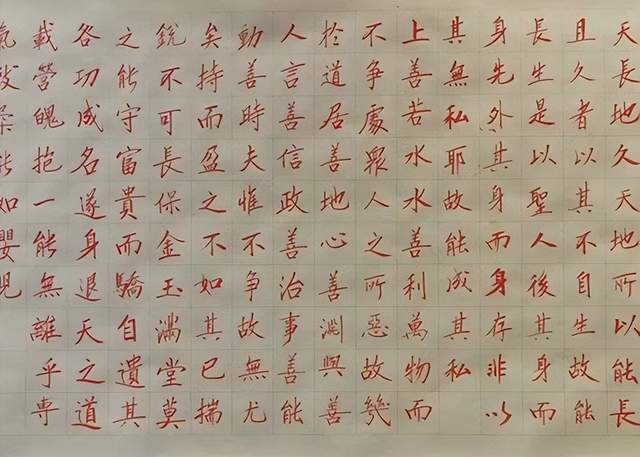 天長地久天地所以能長
且久者以其不自生故能
長生是以聖人後其身而
身先外其身而身存非以
其無私耶故能成其私
上善若水水善利萬物而
不争處衆人之所惡故幾
於道居善地心善淵與善
人言善信政善治事善能
動善時夫惟不争故無尤
矣持而盈之不如其已揣
銳不可長保金玉滿堂莫
之能守富貴而驕自遺其
各功成名遂身退天之道
載營魄抱一能無離乎專
氣致柔能如嬰兒